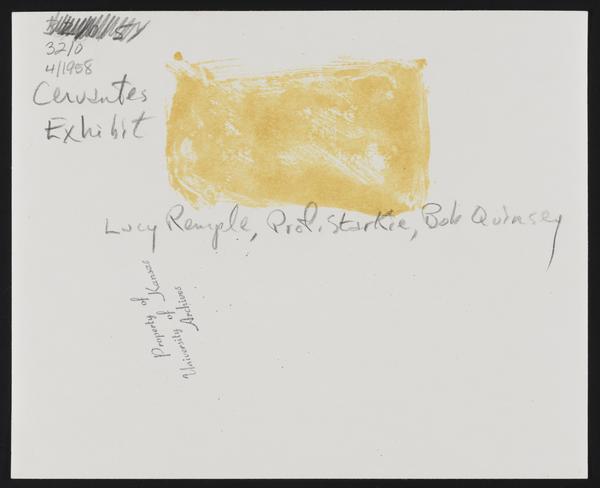 32/0
4/1958
Cervantes
Exhibit
Lucy Remple, Prof. Starkie, Bob Quinsey
Property of
University of Kansas
Archives